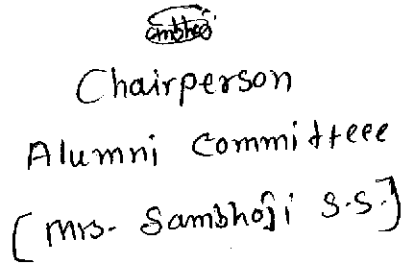 Chairperson
Alumni Committeee
[Mrs. Sambhoji S.S.]